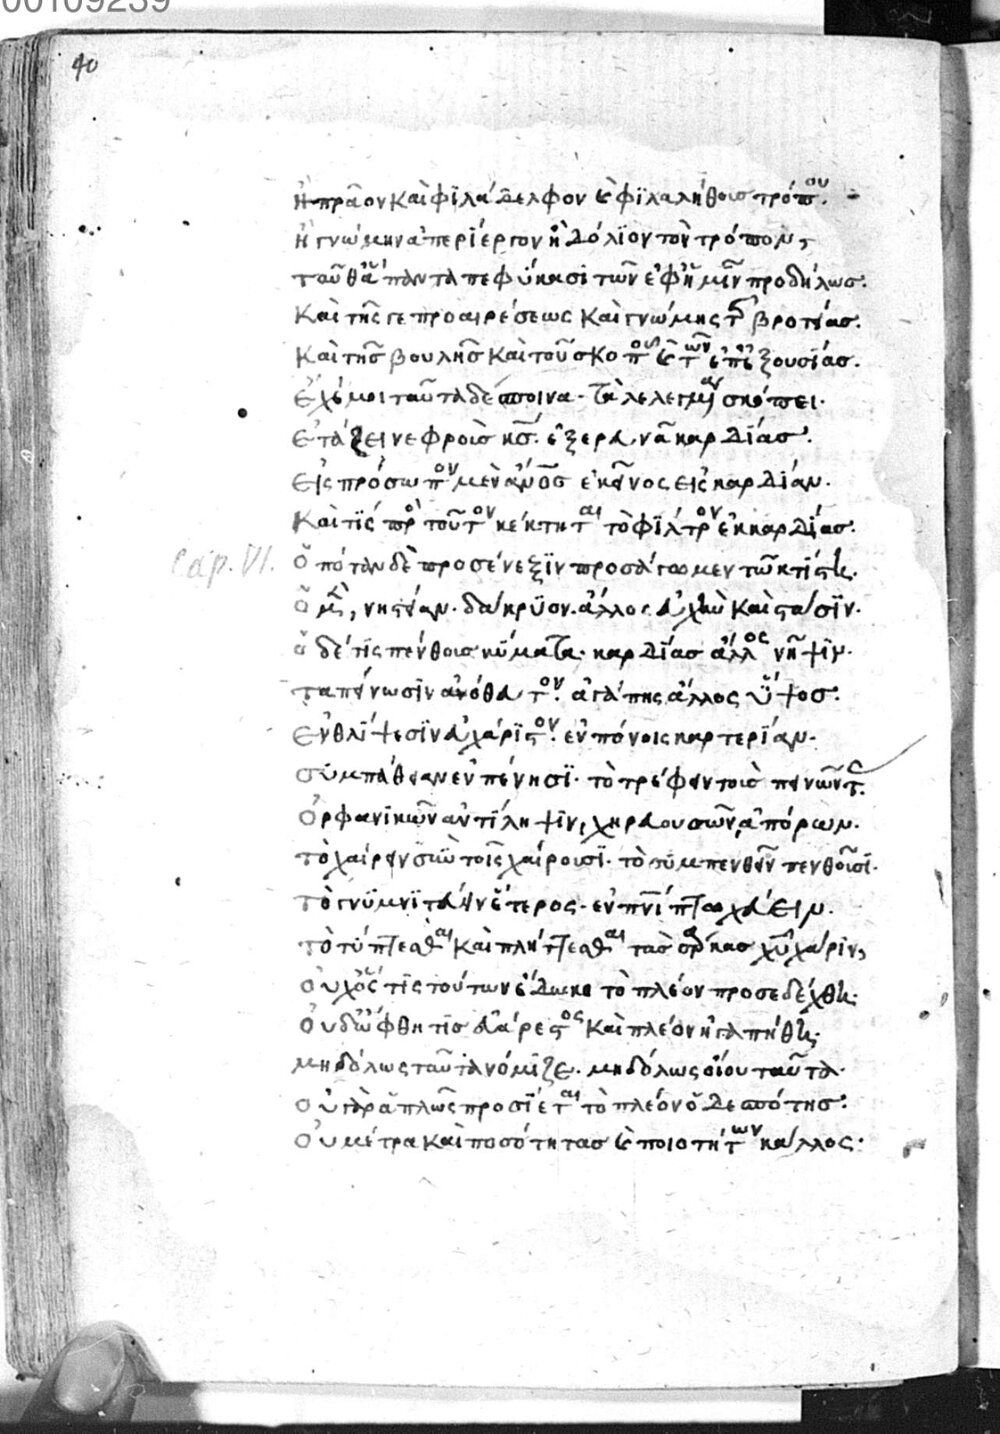 00109239
40
Ἢ πρᾶον καὶ φϊλάδελφον καὶ φϊλαλήθοις τρόπου.
Ἢ γνώμην ἀπερίεργον ἢ δόλϊον τὸν τρόπον,
ταῦθ' ἅπαντα πεφύκασϊ τῶν ἐφ' ἡμῖν προδήλως.
Καὶ τῆς γε προαιρέσεως καὶ γνώμης τῆς βροτείας.
Καὶ τῆς βουλῆς καὶ τοῦ σκοποῦ καὶ τῶν ἐπ' ἐξουσΐας.
Ἔχε μοι ταῦτα δέσποινα· τὰ λελεγμέναν σκόπει.
Ἐτάζει νεφροὺς κς. ἐξερευνᾶ καρδΐας.
Εἰς πρόσωπον μὲν ἄνος ἐκεῖνος εἰς καρδΐαν.
Καὶ τίς πρὸ τούτον κέκτηται τὸ φίλτρον ἐκ καρδΐας.
Cap. VI.
Ὁπόταν δὲ προσένεξϊν προσάγωμεν τῶ κτίστη.
ὁ μὲν, νηστείαν· δάκρϋον. ἄλλος εὐχὴν καὶ στάσϊν.
ὁ δέ τις πένθοις κύματα· καρδΐας ἄλλος νῆψϊν.
ταπείνωσϊν ἀγάπης ἄλλος ὕψος.
Ἐν θλίψεσϊν εὐχάρϊστον. ἐν πόνοις καρτερΐαν.
συμπάθειαν ἐν πένησϊ· τὸ τρέφειν τοὺς πεινῶντας.
Ὀρφανϊκῶν ἀντίληψϊν, χηρευουσῶν, ἀπόρων.
τὸ χαίρειν σὺν τοῖς χαίρουσϊ· τὸ συμπενθεῖν πενθοῦσϊ.
τὸ γυμνϊτεύειν ἕτερος. ἐν πνι πτωχεύειν.
τὸ τύπτεσθαι καὶ πλήττεσθαι τὰς σάρκας χυ χάρϊν,
Οὐχ ὅς τις τούτων ἔδωκε τὸ πλέον προσεδέχθη.
Οὐδ' ὤφθη τις εὐάρεστος καὶ πλέον ἠγαπήθη.
μηδόλως ταῦτα νόμϊζε. μηδόλως οἴου ταῦτα.
οὐ γὰρ ἁπλῶς προσίεται τὸ πλέον ὁ δεσπότης.
Οὐ μέτρα καὶ ποσότητας καὶ ποιοτήτων κάλλος.